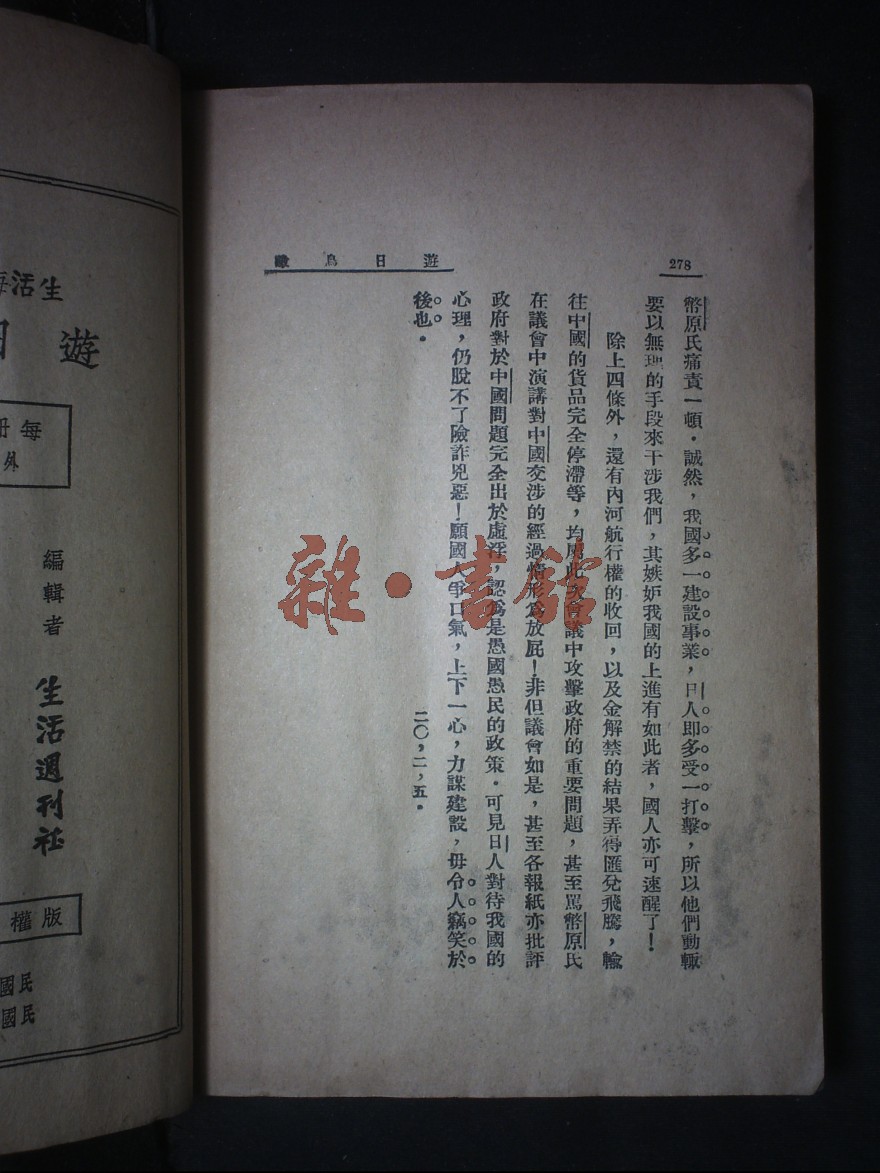 278
遊日鳥瞰
幣原氏痛責一頓．誠然，我國多一建設事業，日人即多受一打擊，所以他們動輒
要以無理的手段來干涉我們，其嫉妒我國的上進有如此者，國人亦可速醒了！
除上四條外，還有內河航行權的收回，以及金解禁的結果弄得匯兌飛騰，輸
往中國的貨品完全停滯等，均屬此次會議中攻擊政府的重要問題，甚至罵幣原氏
在議會中演講對中國交涉的經過情形為放屁！非但議會如是，甚至各報紙亦批評
政府對於中國問題完全出於虛浮，認為是愚國愚民的政策．可見日人對待我國的
心理，仍脫不了險詐兇惡！願國人爭口氣，上下一心，力謀建設，毋令人竊笑於
後也．
二〇，二，五．
生活
遊
每冊
外
編輯者
生活週刊社
版權
民國
民國
雜·書館